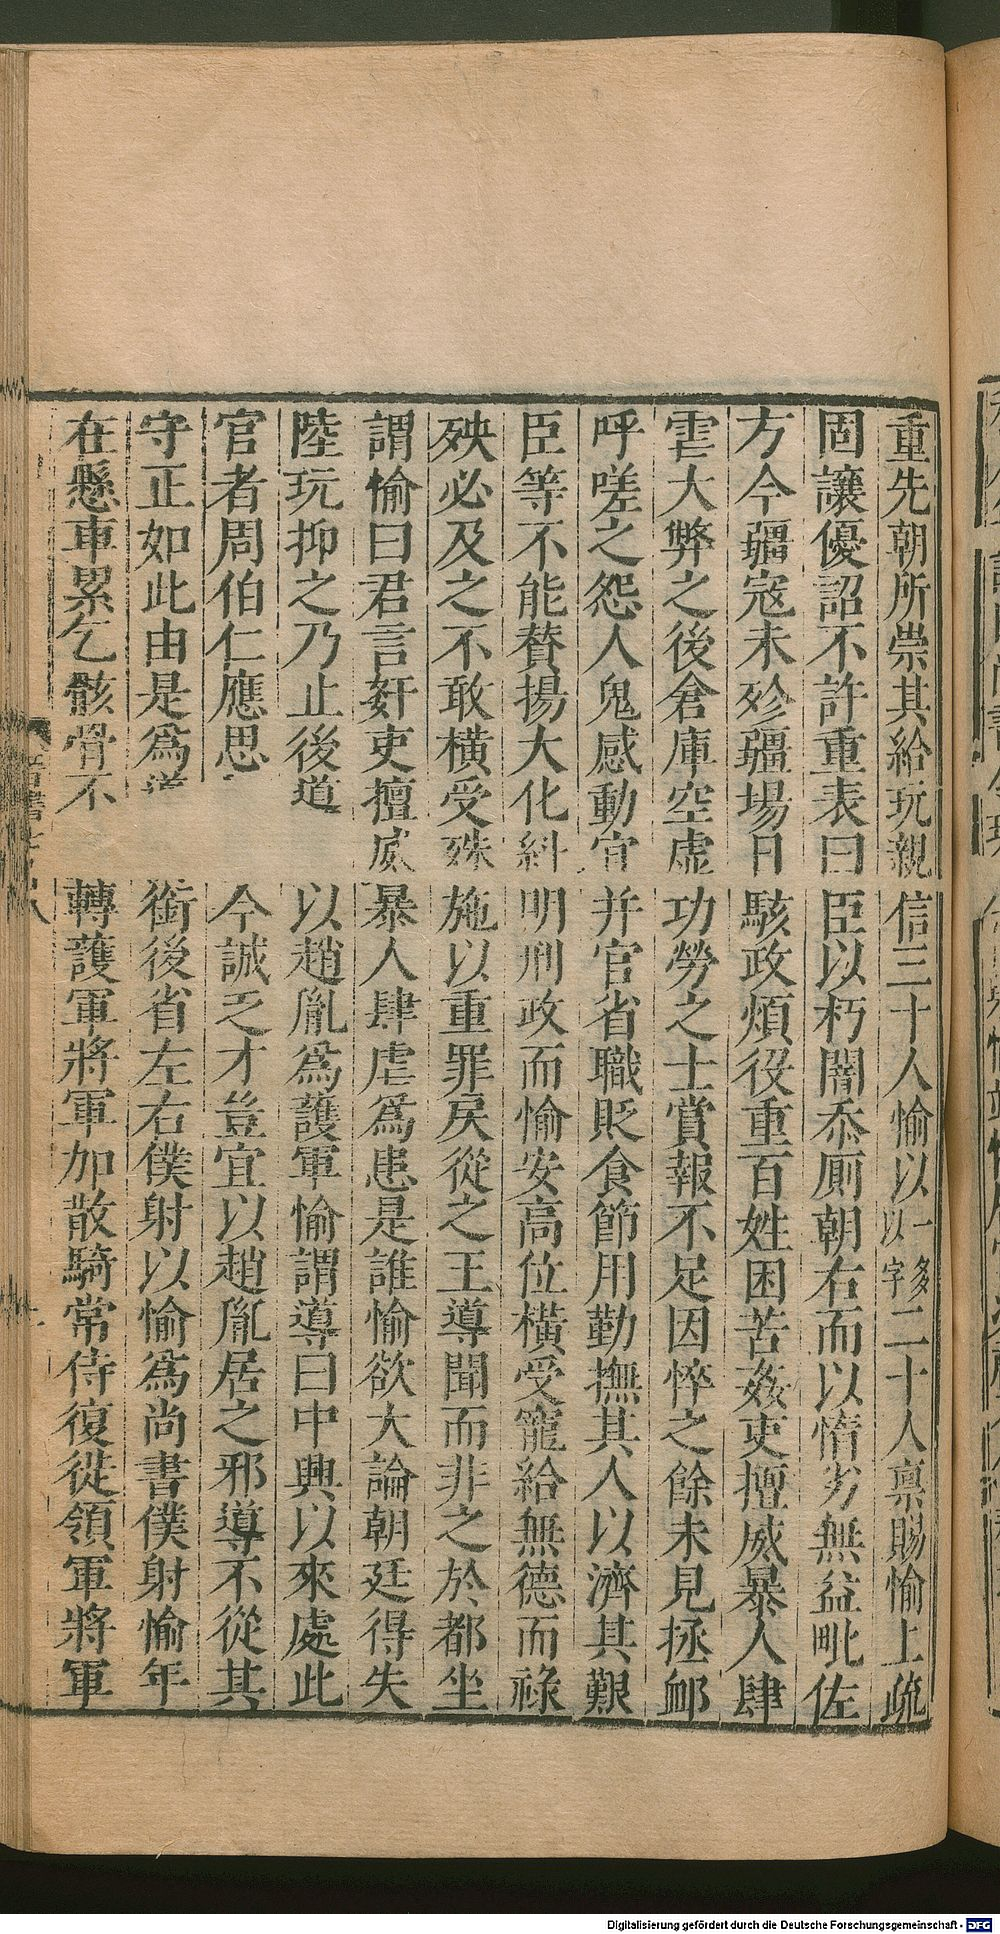 重先朝所崇其給玩親信三十人愉以一多以字二十人稟賜愉上疏
固讓優詔不許重表曰臣以朽闇忝廁朝右而以惰劣無益毗佐
方今疆寇未殄疆場日駭政煩役重百姓困苦姦吏擅威暴人肆
虐大弊之後倉庫空虛功勞之士賞報不足因悴之餘未見拯卹
呼嗟之怨人鬼感動宜并官省職貶食節用勤撫其人以濟其艱
臣等不能賛揚大化糾明刑政而愉安高位橫受寵給無德而祿
殃必及之不敢橫受殊施以重罪戾從之王導聞而非之於都坐
謂愉曰君言奸吏擅威暴人肆虐爲患是誰愉欲大論朝廷得失
陸玩抑之乃止後道以趙胤爲護軍愉謂導曰中興以來處此
官者周伯仁應思今誠乏才豈宜以趙胤居之邪導不從其
守正如此由是爲銜後省左右僕射以愉爲尚書僕射愉年
在懸車累乞骸骨不轉護軍將軍加散騎常侍復徙領軍將軍
Digitalisierung gefördert durch die Deutsche Forschungsgemeinschaft - DFG